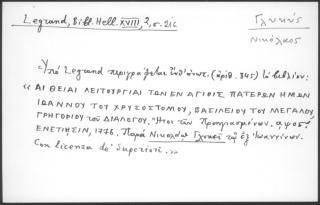 Legrand, Bibl. Hell. XVIII, 2, σ. 216
Γλυκύς
Νικόλαος
Ὑπό Legrand περιγράφεται ὑπ' ἀριθ. (ἀριθ. 845) τό βιβλίον:
« ΑΙ ΘΕΙΑΙ ΛΕΙΤΟΥΡΓΙΑΙ ΤΩΝ ΕΝ ΑΓΙΟΙΣ ΠΑΤΕΡΩΝ ΗΜΩΝ
ΙΩΑΝΝΟΥ ΤΟΥ ΧΡΥΣΟΣΤΟΜΟΥ, ΒΑΣΙΛΕΙΟΥ ΤΟΥ ΜΕΓΑΛΟΥ,
ΓΡΗΓΟΡΙΟΥ τοῦ ΔΙΑΛΟΓΟΥ. Ἤτοι τῶν Προηγιασμένων. αψοστ'.
ΕΝΕΤΙΗΣΙΝ, 1776. Παρά Νικολάῳ Γλυκεῖ τῷ ἐξ Ἰωαννίνων.
Con licenza de' Superiori. »